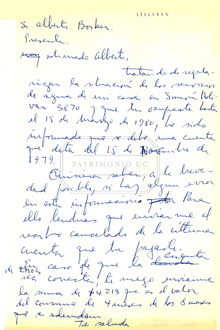 Sr Alberto Borken
Presente.
Estimado Albert,
tratando de regula-
rizar la situación de los servicios
de agua de mi casa en Simón Bolí-
var 5870 y que tu ocupaste hasta
el 15 de Marzo de 1980, he sido
informado que se debe una cuenta
que data del 15 de Noviembre de
1979.
PATRIMONIO UC
Quisiera saber, a la breve-
dad posible, si hay algun error
en esta información. Para
ello tendrias que enviarme el
recibo cancelado de la ultima
cuenta que tu pagaste.
En caso de que la
de ellos sea correcta, te ruego enviarme
la suma de $4,213 que es el valor
del consumo de 4 meses de los 8 meses
que se adeudan.
Te saluda